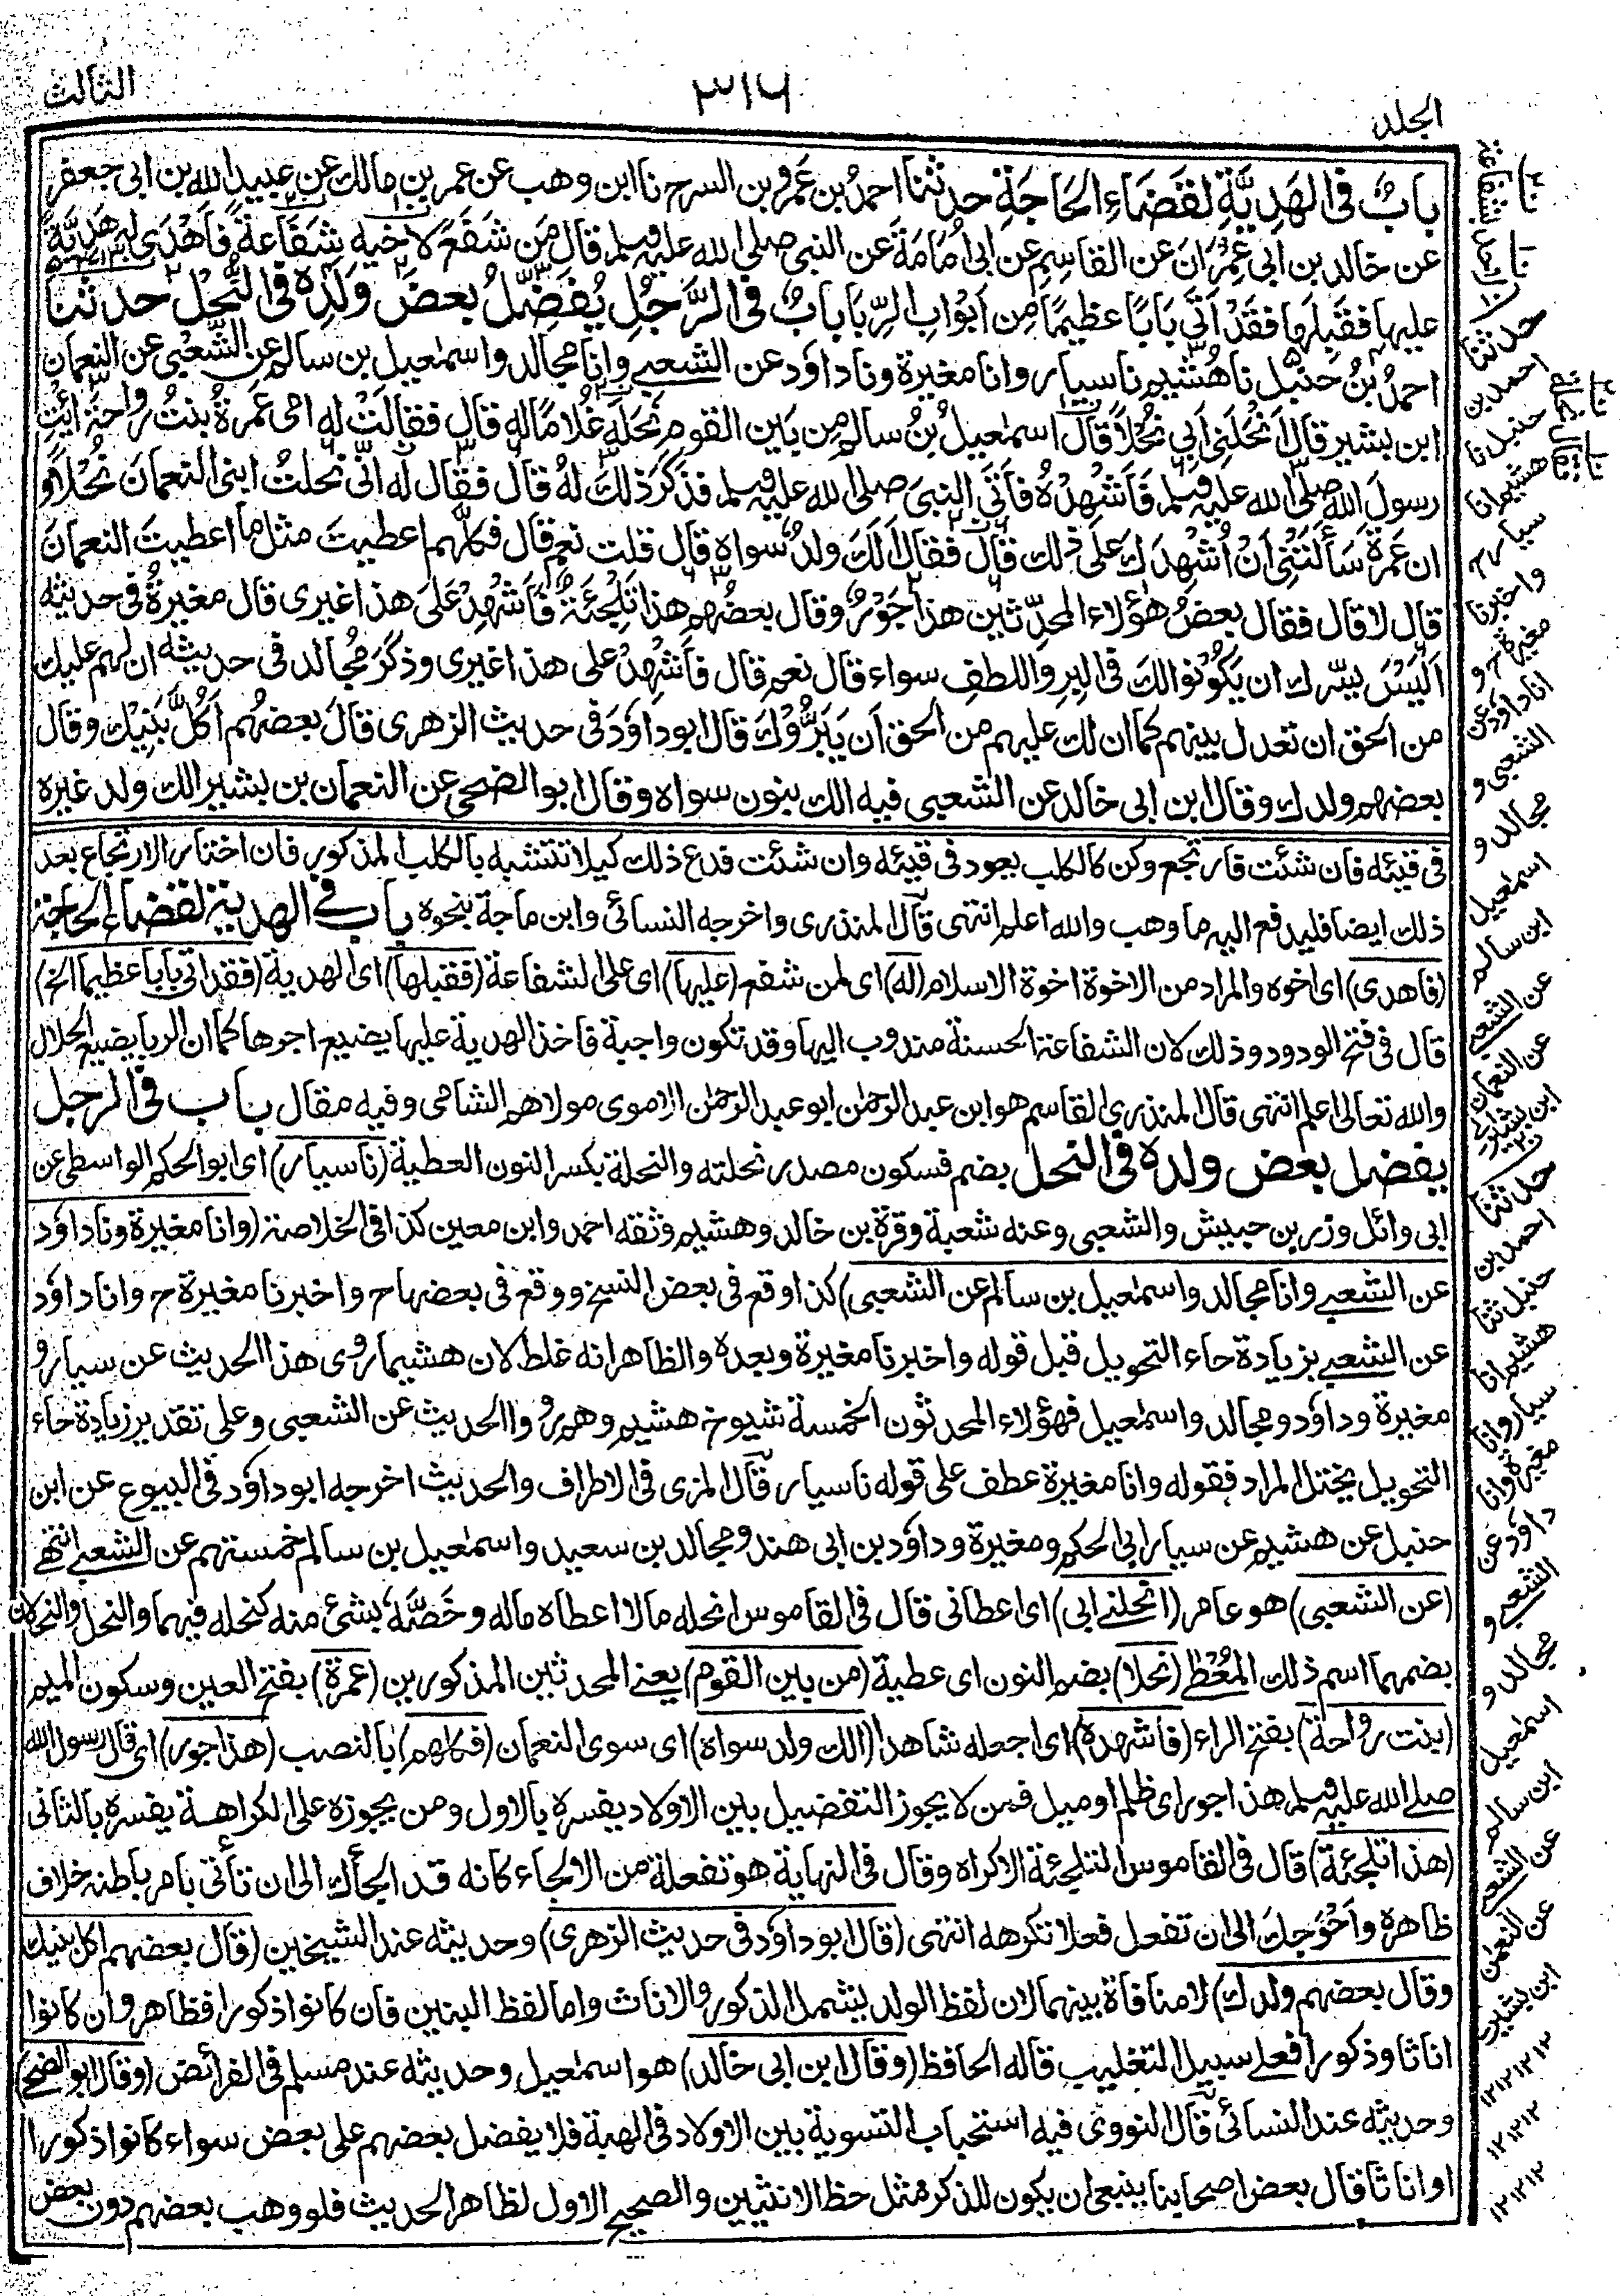 الجلد
٣١٦
الثالث
بابٌ فی الهَدِیَّةِ لقَضَاءِ الحَاجَةِ حدثنا احمدُ بن عَمرِو بن السرح نا ابن وهب عن عمر بن مالك عن عبید الله بن ابی جعفر
عن خالد بن ابی عِمْرَانَ عن القاسِمِ عن ابی اُمَامَةَ عن النبی صلی الله علیه وسلم قال مَن شَفَعَ لاخیه شَفَاعَةً فَاَهْدَی له هَدِیَّةً
علیها فقَبِلَها فقَدْ اَتَی بَابًا عظیمًا مِن اَبْوَابِ الرِّبَا بابٌ فی الرَّجُلِ یُفَضِّلُ بعضَ وَلَدِه فی النُّحْلِ حدثنا
احمدُ بنُ حنبل نا هُشَیم نا سیار وانا مغیرة ونا داؤد عن الشعبے وانا مجالد واسمٰعیل بن سالم عن الشَّعْبی عن النعمان
ابن بشیر قال اَنْحَلَنِی اَبِی نُحْلًا قال اسمٰعیلُ بنُ سالم مِن بَین القوم نَحَلَه غُلَامًا له قال فقالَتْ له امی عَمرةُ بنتُ رواحة اِیْتِ
رسولَ الله صلی الله علیه وسلم فَاَشْهِدْهُ فَاَتَی النبیَ صلی الله علیه وسلم فذَکَرَ ذلك لهُ قال فقال له اِنِّی نحلتُ ابنی النعمانَ نُحْلًا و
ان عَمرةَ سَأَلَتْنِی اَنْ اُشْهِدَكَ عَلَی ذلك قال فقال اَلَكَ ولدٌ سواه قال قلت نعم قال فکلَّهم اعطیتَ مثل ما اعطیتَ النعمانَ
قال لا قال فقال بعضُ هٰؤلاء المحدِّثین هذا جَوْرٌ وقال بعضُهم هذا تَلْجِئَةٌ فَاَشْهِدْ عَلَی هذا غیری قال مغیرةُ فی حدیثه
اَلَیْسَ یسُرّك ان یَکُوْنُوا لَكَ فی البِر واللطفِ سواء قال نعم قال فَاَشْهِدْ علی هذا غیری وذکَرَ مُجالد فی حدیثه ان لهم علیك
من الحق ان تعدل بینهم کما ان لك علیهم من الحق اَن یَبَرُّوْكَ قال ابوداؤدَ فی حدیث الزهری قالَ بعضهُم اَکُلَّ بَنِیْكَ وقال
بعضهم ولدك وقال ابن ابی خالد عن الشعبی فیه الك بنون سواه وقال ابو الضحی عن النعمان بن بشیر الك ولد غیره
فی قیئه فان شئت فارتجع وکن کالکلب یعود فی قیئه وان شئت فدع ذلك کیلا تتشبه بالکلب المذکور فان اختار الارتجاع بعد
ذلك ایضا فلیدفع الیه ما وهب والله اعلم انتهی قال المنذری واخرجه النسائی وابن ماجة بنحوه باب فی الهدیة لقضاء الحاجة
(فاهدی) ای اخوه والمراد من الاخوة اخوة الاسلام (له) ای لمن شفع (علیها) ای علی الشفاعة (فقبلها) ای الهدیة (فقد اتی بابا عظیما الخ)
قال فی فتح الودود وذلك لان الشفاعة الحسنة مندوب الیها وقد تکون واجبة فاخذ الهدیة علیها یضیع اجرها کما ان الربا یضیع الحلال
والله تعالی اعلم انتهی قال المنذری القاسم هو ابن عبد الرحمٰن ابو عبد الرحمٰن الاموی مولاهم الشامی وفیه مقال باب فی الرجل
یفضل بعض ولده فی النحل بضم فسکون مصدر نحلته والنحلة بکسر النون العطیة (نا سیار) ای ابو الحکم الواسطی عن
ابی وائل وزر بن حبیش والشعبی وعنه شعبة وقرة بن خالد وهشیم وثقه احمد وابن معین کذا فی الخلاصة (وانا مغیرة ونا داؤد
عن الشعبے وانا مجالد واسمٰعیل بن سالم عن الشعبی) کذا وقع فی بعض النسخ ووقع فی بعضها ح واخبرنا مغیرة ح وانا داؤد
عن الشعبے بزیادة حاء التحویل قبل قوله واخبرنا مغیرة وبعده والظاهر انه غلط لان هشیما روی هذا الحدیث عن سیار و
مغیرة وداؤد ومجالد واسمٰعیل فهؤلاء المحدثون الخمسة شیوخ هشیم وهم رووا الحدیث عن الشعبی وعلی تقدیر زیادة حاء
التحویل یختل المراد فقوله وانا مغیرة عطف علی قوله نا سیار قال المزی فی الاطراف والحدیث اخرجه ابو داؤد فی البیوع عن ابن
حنبل عن هشیم عن سیار ابی الحکم ومغیرة وداؤد بن ابی هند ومجالد بن سعید واسمٰعیل بن سالم خمستهم عن الشعبے انتهے
(عن الشعبی) هو عامر (انحلنے ابی) ای اعطانی قال فی القاموس انحله مالا اعطاه ماله وخَصَّهُ بشئ منه کنحله فیهما والنحل والنحلان
بضمهما اسم ذلك المُعْطٰے (نحلا) بضم النون ای عطیة (من بین القوم) یعنے المحدثین المذکورین (عمرة) بفتح العین وسکون المیم
(بنت رواحة) بفتح الراء (فاشهده) ای اجعله شاهدا (الك ولد سواه) ای سوی النعمان (فکلهم) بالنصب (هذا جور) ای قال رسول الله
صلے الله علیه وسلم هذا جور ای ظلم او میل فمن لا یجوز التفضیل بین الاولاد یفسره بالاول ومن یجوزه علی الکراهة یفسره بالثانی
(هذا تلجئة) قال فی القاموس التلجئة الاکراه وقال فی النهایة هو تفعلة من الالجاء کانه قد الجأك الی ان تأتی بامر باطنه خلاف
ظاهره واَحْوَجك الی ان تفعل فعلا تکرهه انتهی (قال ابو داؤد فی حدیث الزهری) وحدیثه عند الشیخین (قال بعضهم اکل بنیك
وقال بعضهم ولدك) لا منافاة بینهما لان لفظ الولد یشمل الذکور والاناث واما لفظ البنین فان کانوا ذکورا فظاهر وان کانوا
اناثا وذکورا فعلے سبیل التغلیب قاله الحافظ (وقال ابن ابی خالد) هو اسمٰعیل وحدیثه عند مسلم فی الفرائض (وقال ابو الضحے)
وحدیثه عند النسائی قال النووی فیه استحباب التسویة بین الاولاد فی الهبة فلا یفضل بعضهم علی بعض سواء کانوا ذکورا
او اناثا قال بعض اصحابنا ینبغی ان یکون للذکر مثل حظ الانثیین والصحیح الاول لظاهر الحدیث فلو وهب بعضهم دون بعض
حدثنا
احمد بن
حنبل نا
هشیم انا
سیار ح
واخبرنا
مغیرة ح و
انا داؤد عن
الشعبی و
مجالد و
اسمٰعیل
ابن سالم
عن الشعبے
عن النعمان
ابن بشیر
حدثنا
احمد بن
حنبل ثنا
هشیم انا
سیار وانا
مغیرة وانا
داؤد عن
الشعبے و
مجالد و
اسمٰعیل
ابن سالم
عن الشعبے
عن النعمٰن
ابن بشیر
١٢ ١٢ ١٢ ١٢
١٢ ١٢ ١٢
١٢ ١٢ ١٢